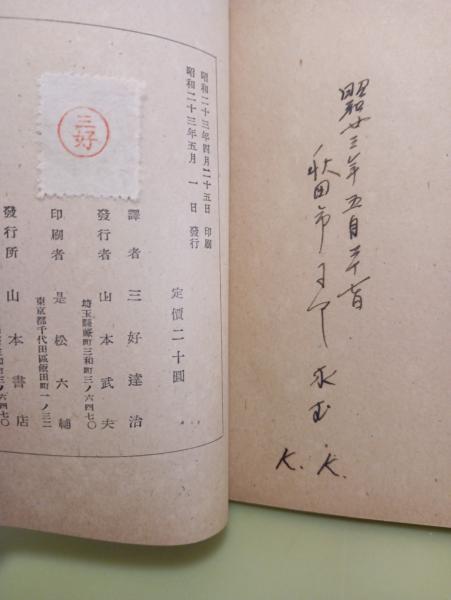 昭廿三年五月三十一日
秋田市ニ於テ 求ム
K. K.
三好
昭和二十三年四月二十五日 印刷
昭和二十三年五月 一日 發行
定價二十圓
譯者 三好達治
發行者 山本武夫
埼玉縣蕨町三和町三ノ六四七〇
印刷者 是松六輔
東京都千代田區飯田町一ノ三二
發行所 山本書店